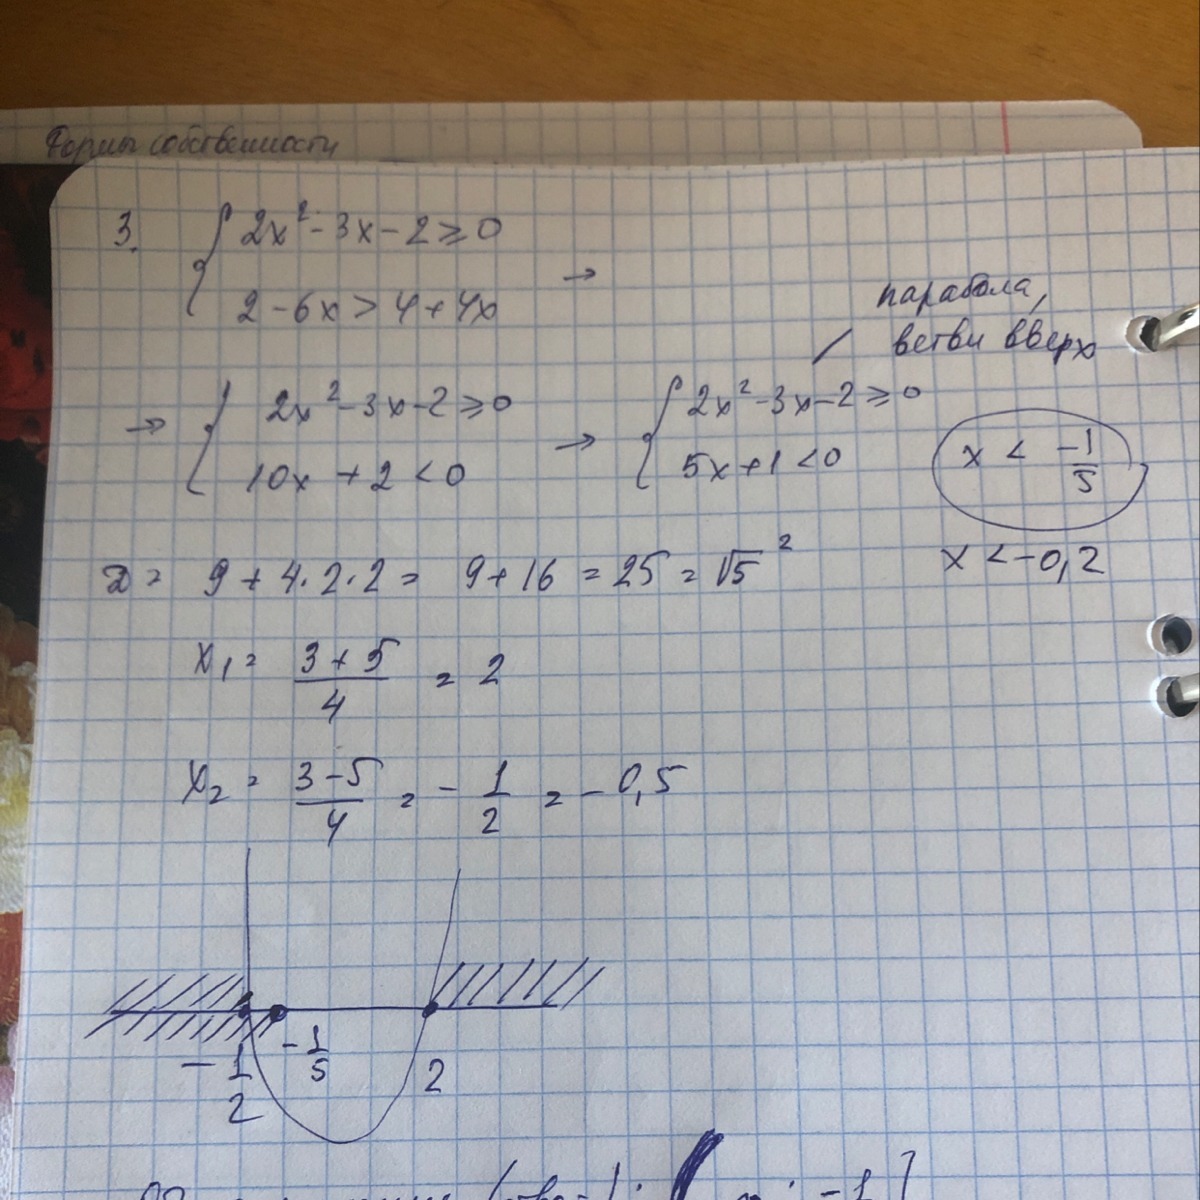 Формы собственности
3. { 2x² - 3x - 2 ≥ 0
2 - 6x > 4 + 4x →
парабола,
ветви вверх
→ { 2x² - 3x - 2 ≥ 0
10x + 2 < 0
→ { 2x² - 3x - 2 ≥ 0
5x + 1 < 0
x < -1/5
x < -0,2
D = 9 + 4·2·2 = 9 + 16 = 25 = √5²
x₁ = (3 + 5)/4 = 2
x₂ = (3 - 5)/4 = -1/2 = -0,5
-1/2 -1/5 2